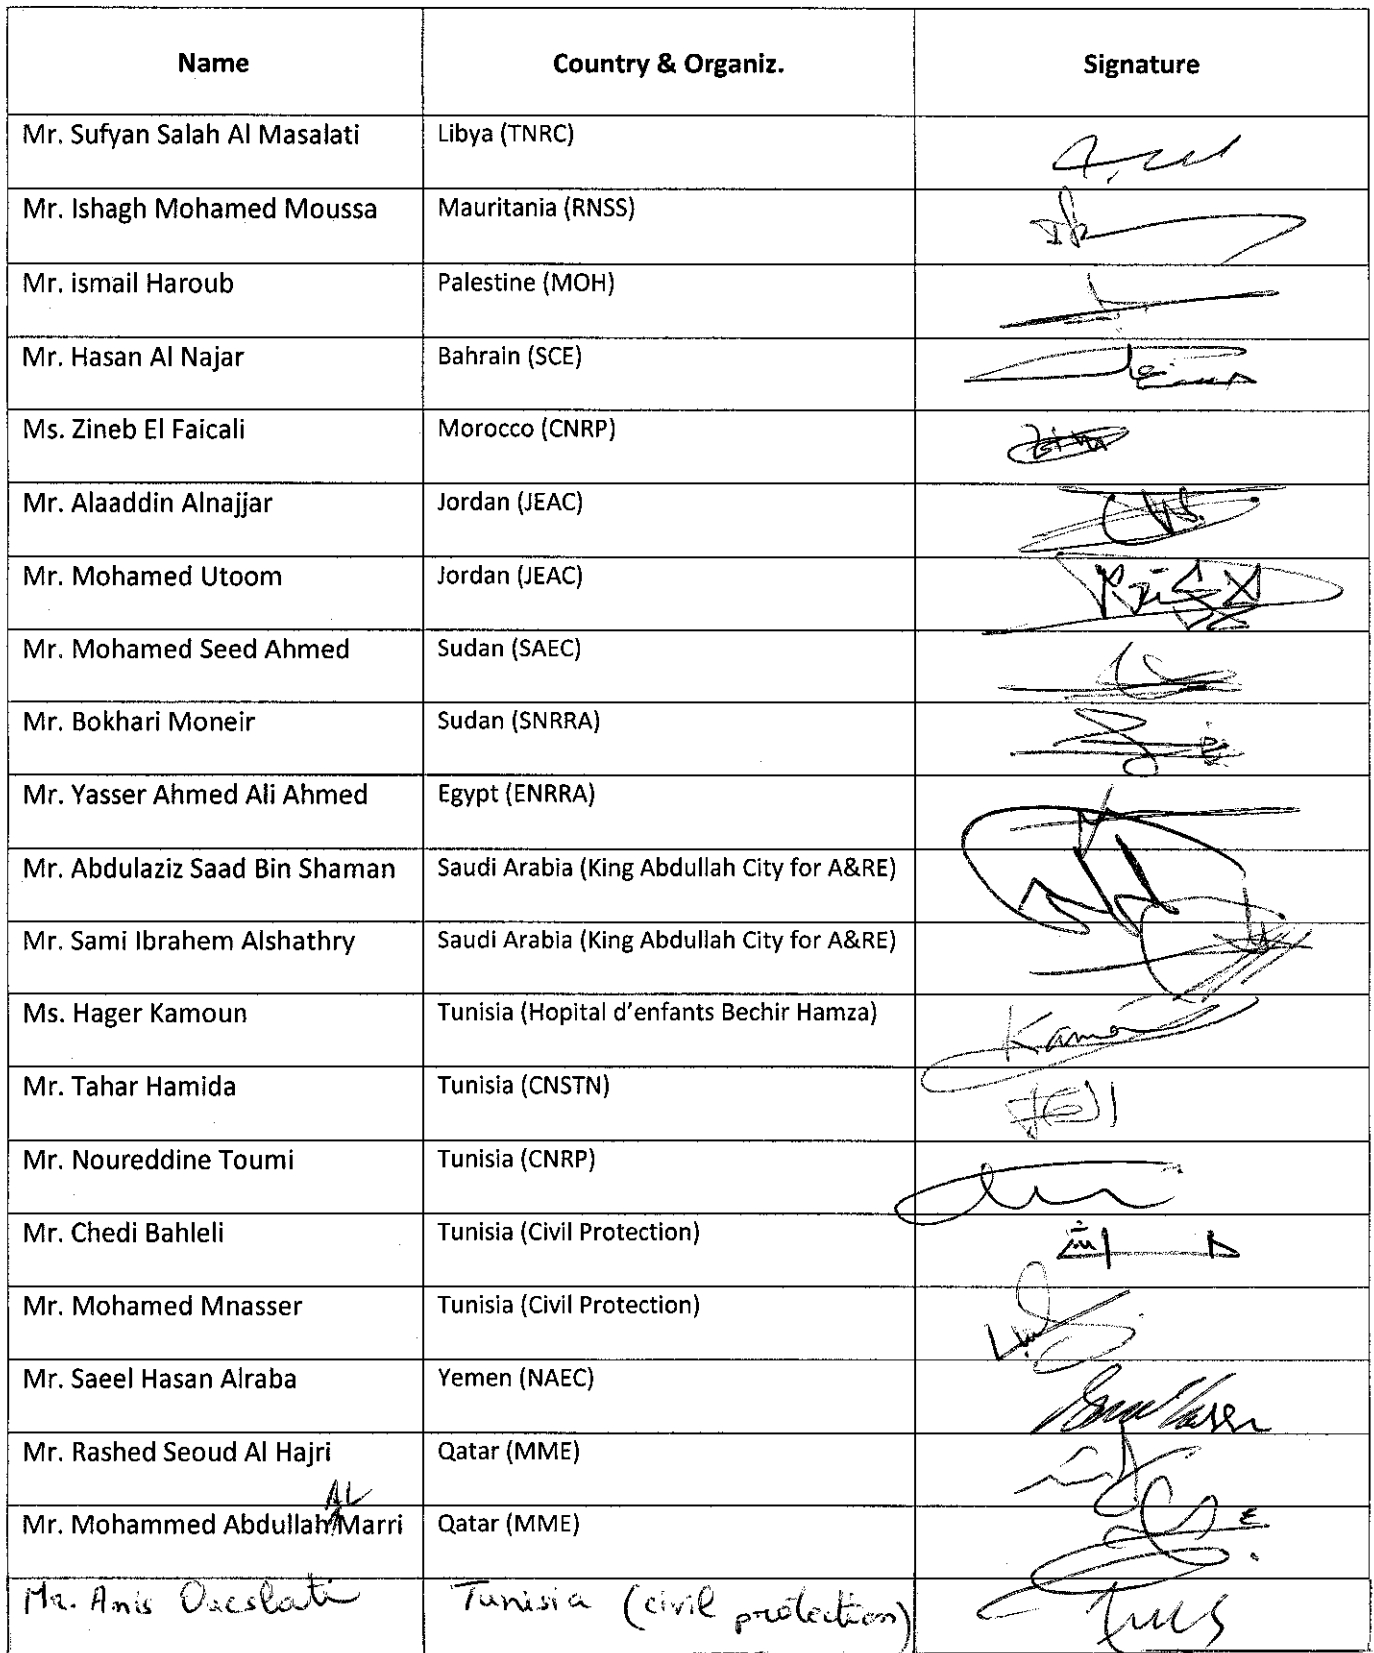 Name Country & Organiz. Signature
Mr. Sufyan Salah Al Masalati Libya (TNRC)
Mr. Ishagh Mohamed Moussa Mauritania (RNSS)
Mr. ismail Haroub Palestine (MOH)
Mr. Hasan Al Najar Bahrain (SCE)
Ms. Zineb El Faicali Morocco (CNRP)
Mr. Alaaddin Alnajjar Jordan (JEAC)
Mr. Mohamed Utoom Jordan (JEAC)
Mr. Mohamed Seed Ahmed Sudan (SAEC)
Mr. Bokhari Moneir Sudan (SNRRA)
Mr. Yasser Ahmed Ali Ahmed Egypt (ENRRA)
Mr. Abdulaziz Saad Bin Shaman Saudi Arabia (King Abdullah City for A&RE)
Mr. Sami Ibrahem Alshathry Saudi Arabia (King Abdullah City for A&RE)
Ms. Hager Kamoun Tunisia (Hopital d'enfants Bechir Hamza)
Mr. Tahar Hamida Tunisia (CNSTN)
Mr. Noureddine Toumi Tunisia (CNRP)
Mr. Chedi Bahleli Tunisia (Civil Protection)
Mr. Mohamed Mnasser Tunisia (Civil Protection)
Mr. Saeel Hasan Alraba Yemen (NAEC)
Mr. Rashed Seoud Al Hajri Qatar (MME)
AL
Mr. Mohammed Abdullah Marri Qatar (MME)
Mr. Anis Oueslati Tunisia (civil protection)